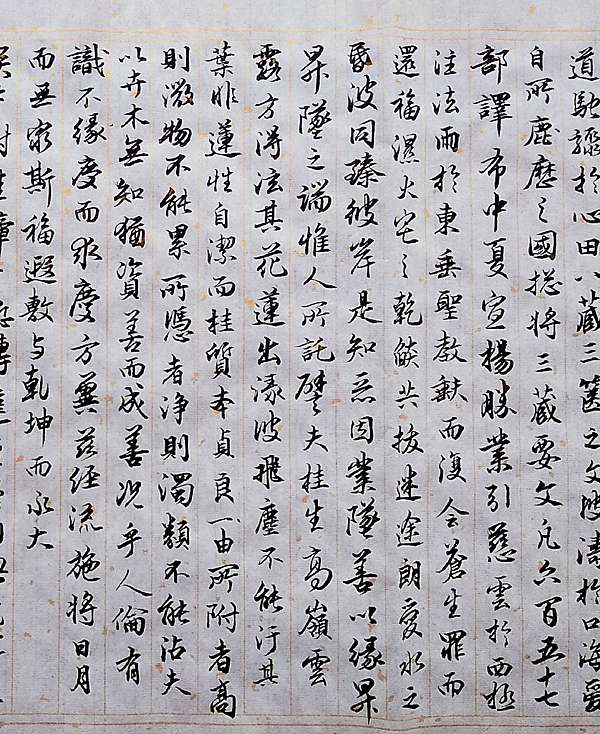 道馳驟於心田八藏三篋之文波濤於口海爰
自所鹿歷之國揔將三藏要文凡六百五十七
部譯布中夏宣揚勝業引慈雲於西極
注法雨於東垂聖教缺而復全蒼生罪而
還福濕火宅之乾燄共拔迷途朗愛水之
昏波同臻彼岸是知惡因業墜善以緣昇
昇墜之端惟人所託譬夫桂生高嶺雲
露方得泫其花蓮出淥波飛塵不能汙其
葉非蓮性自潔而桂質本貞良由所附者高
則微物不能累所憑者淨則濁類不能沾夫
以卉木無知猶資善而成善況乎人倫有
識不緣慶而求慶方冀茲經流施將日月
而無窮斯福遐敷與乾坤而永大